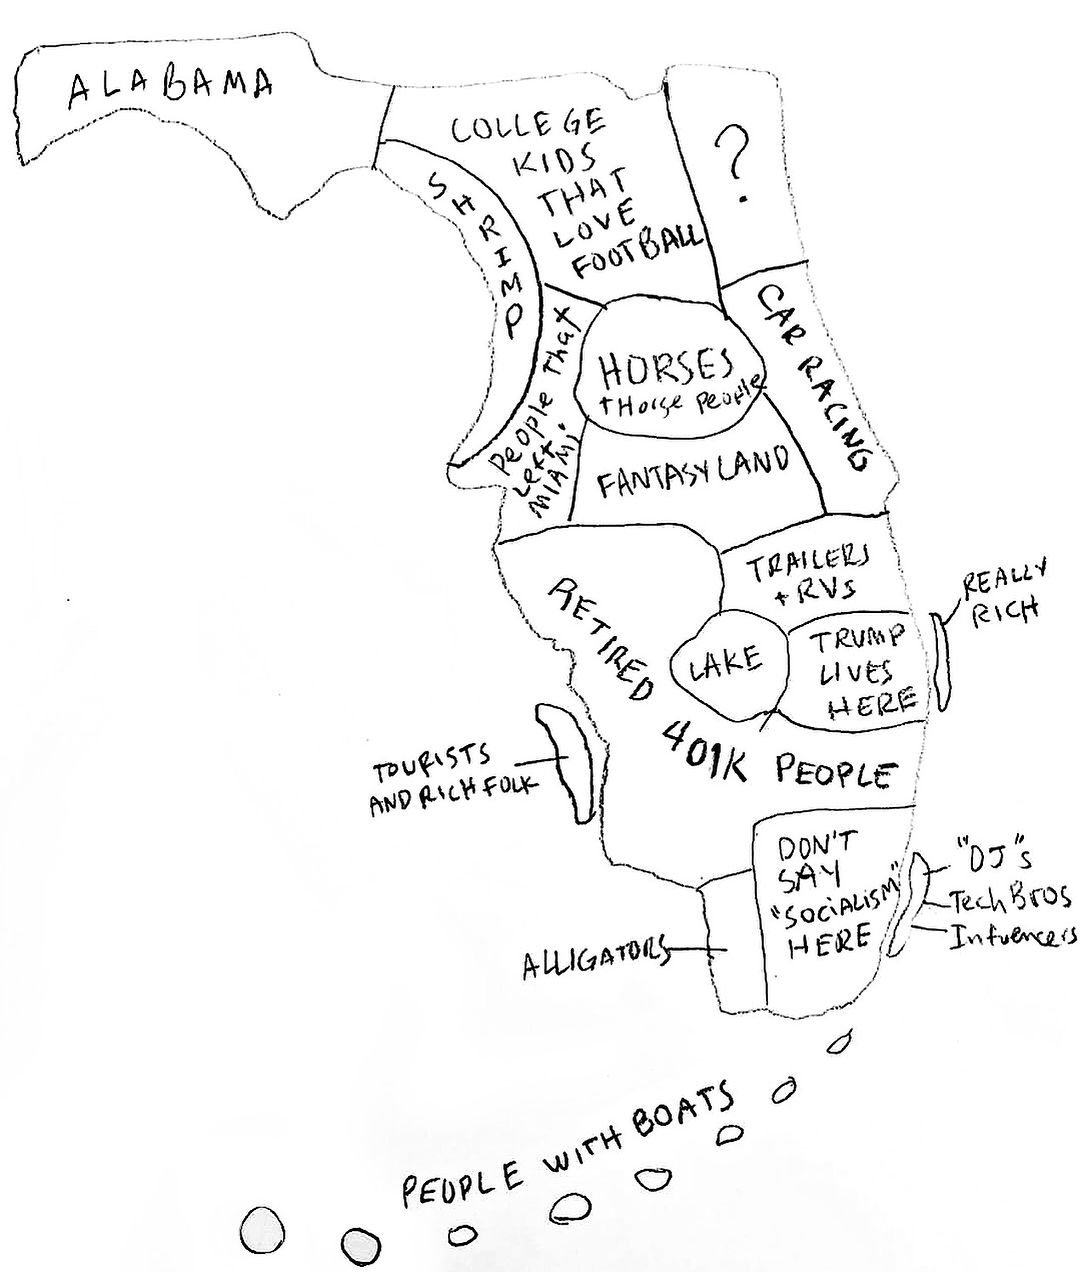 ALABAMA
COLLEGE
KIDS
THAT
LOVE
FOOTBALL
?
SHRIMP
CAR RACING
People That
Left
MIAMI
HORSES
+ Horse People
FANTASYLAND
TRAILERS
+ RVs
REALLY
RICH
RETIRED 401K PEOPLE
LAKE
TRUMP
LIVES
HERE
TOURISTS
AND RICH FOLK
DON'T
SAY
"SOCIALISM"
HERE
"DJ"s
Tech Bros
Influencers
ALLIGATORS
PEOPLE WITH BOATS